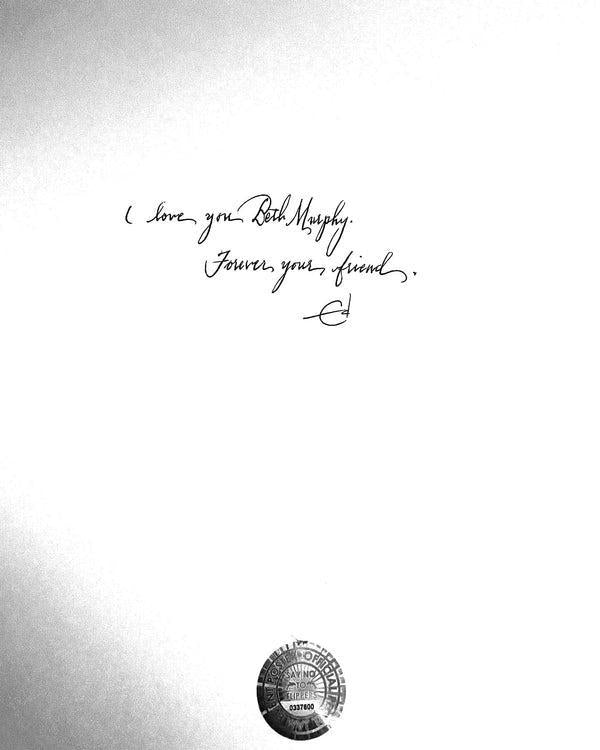 I love you Beth Murphy.
Forever your friend.
Ed
OFFICIAL
SAY NO
TO
FLIPPERS
0337600